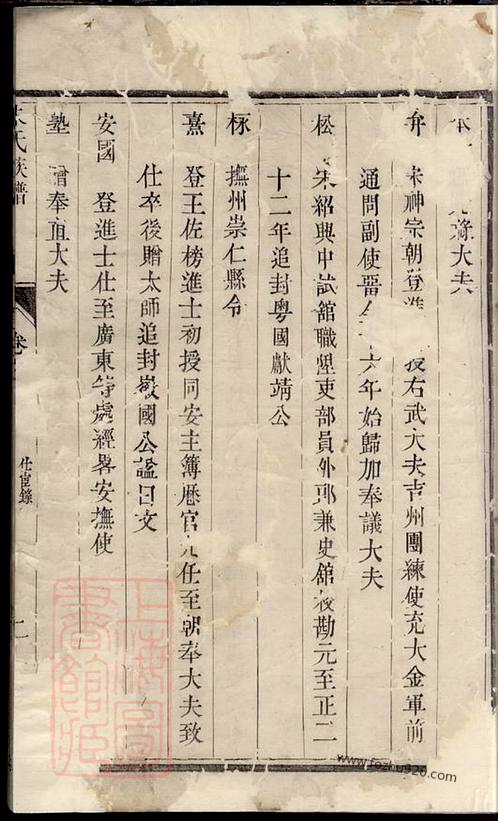 大夫
弁 宋神宗朝登進 授右武大夫吉州團練使充大金軍前
通問副使 六年始歸加奉議大夫
松 宋紹興中試館職 吏部員外郎兼史館校勘元至正二
十二年追封粵國獻靖公
撫州崇仁縣令
熹 登王佐榜進士初授同安主簿歷官九任至朝奉大夫致
仕卒後贈太師追封徽國公諡曰文
安國 登進士仕至廣東等處經畧安撫使
塾 贈奉直大夫
氏族譜
卷
仕宦錄
二
上海圖書館藏
www.fozhu920.com